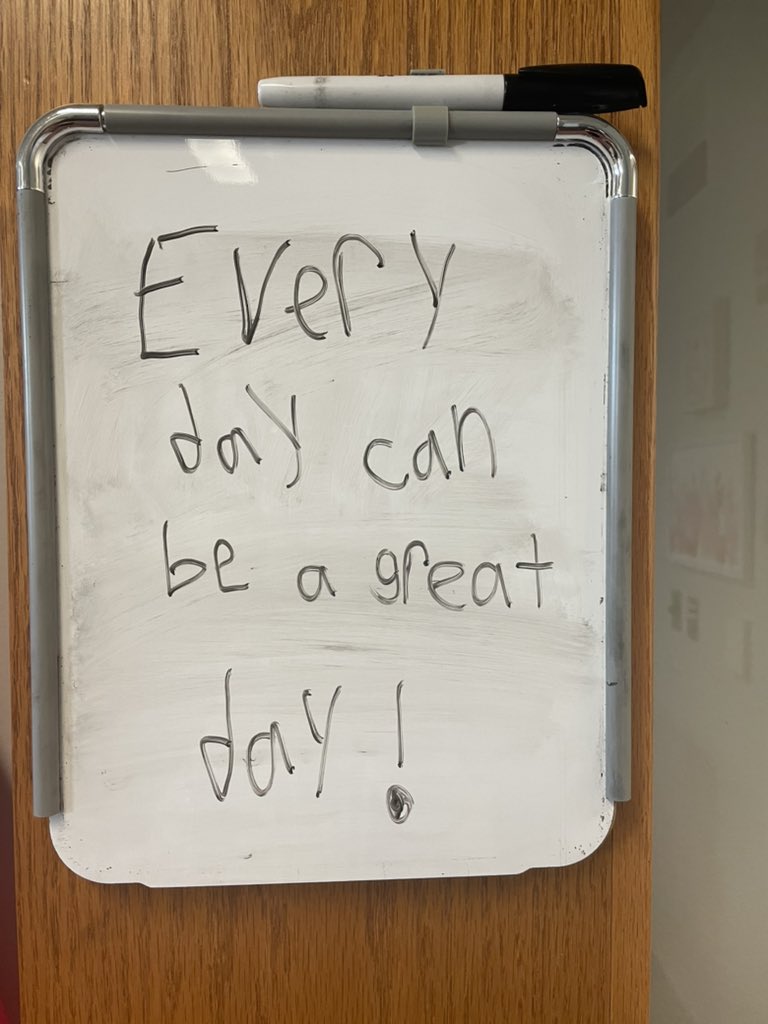 Every
day can
be a great
day!